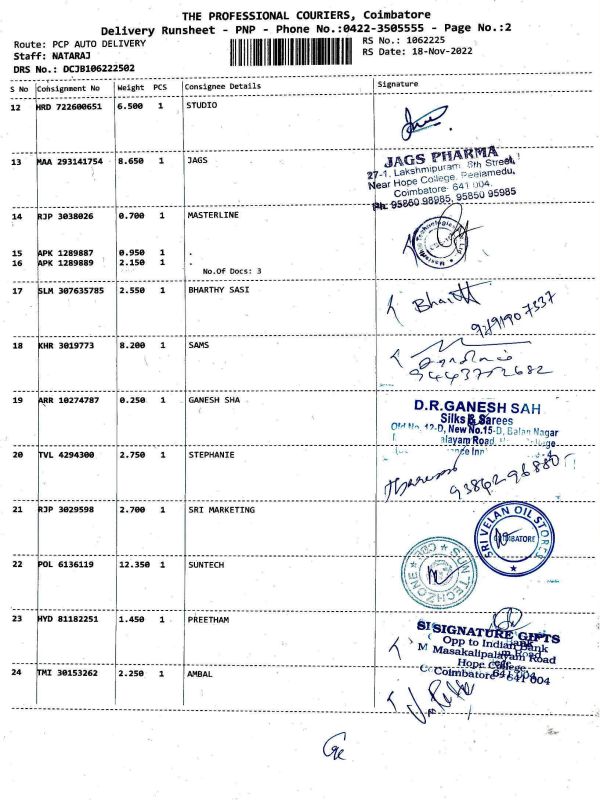 THE PROFESSIONAL COURIERS, Coimbatore
Delivery Runsheet - PNP - Phone No.:0422-3505555 - Page No.:2
Route: PCP AUTO DELIVERY
RS No.: 1062225
Staff: NATARAJ
RS Date: 18-Nov-2022
DRS No.: DCJB106222502
S No Consignment No Weight PCS Consignee Details Signature
12 HRD 722600651 6.500 1 STUDIO
13 MAA 293141754 8.650 1 JAGS
JAGS PHARMA
27-1, Lakshmipuram, 8th Street,
Near Hope College, Peelamedu,
Coimbatore- 641 004.
Ph: 95860 98985, 95850 95985
14 RJP 3038026 0.700 1 MASTERLINE
15 APK 1289887 0.950 1 .
16 APK 1289889 2.150 1 .
No.Of Docs: 3
17 SLM 307635785 2.550 1 BHARTHY SASI
Bharath
9291907337
18 KHR 3019773 8.200 1 SAMS
9443752682
19 ARR 10274787 0.250 1 GANESH SHA
D.R.GANESH SAH
Silks & Sarees
Old No. 12-D, New No.15-D, Balan Nagar
alayam Road,
20 TVL 4294300 2.750 1 STEPHANIE
9386296880
21 RJP 3029598 2.700 1 SRI MARKETING
SRI VELAN OIL STORES
COIMBATORE
22 POL 6136119 12.350 1 SUNTECH
SUN TECHZONE CBE
23 HYD 81182251 1.450 1 PREETHAM
SIGNATURE GIFTS
Opp to Indian Bank
Masakalipalayam Road
Hope College
Coimbatore - 641 004
24 TMI 30153262 2.250 1 AMBAL